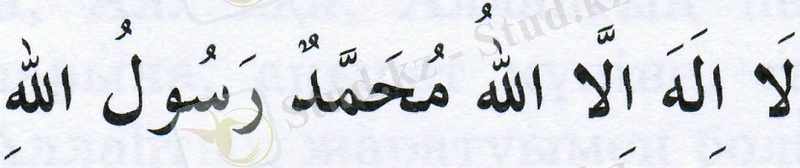 لَا اِلَهَ اِلَّا اللهُ مُحَمَّدٌ رَسُولُ اللهِ
Stud.kz - Stud.kz